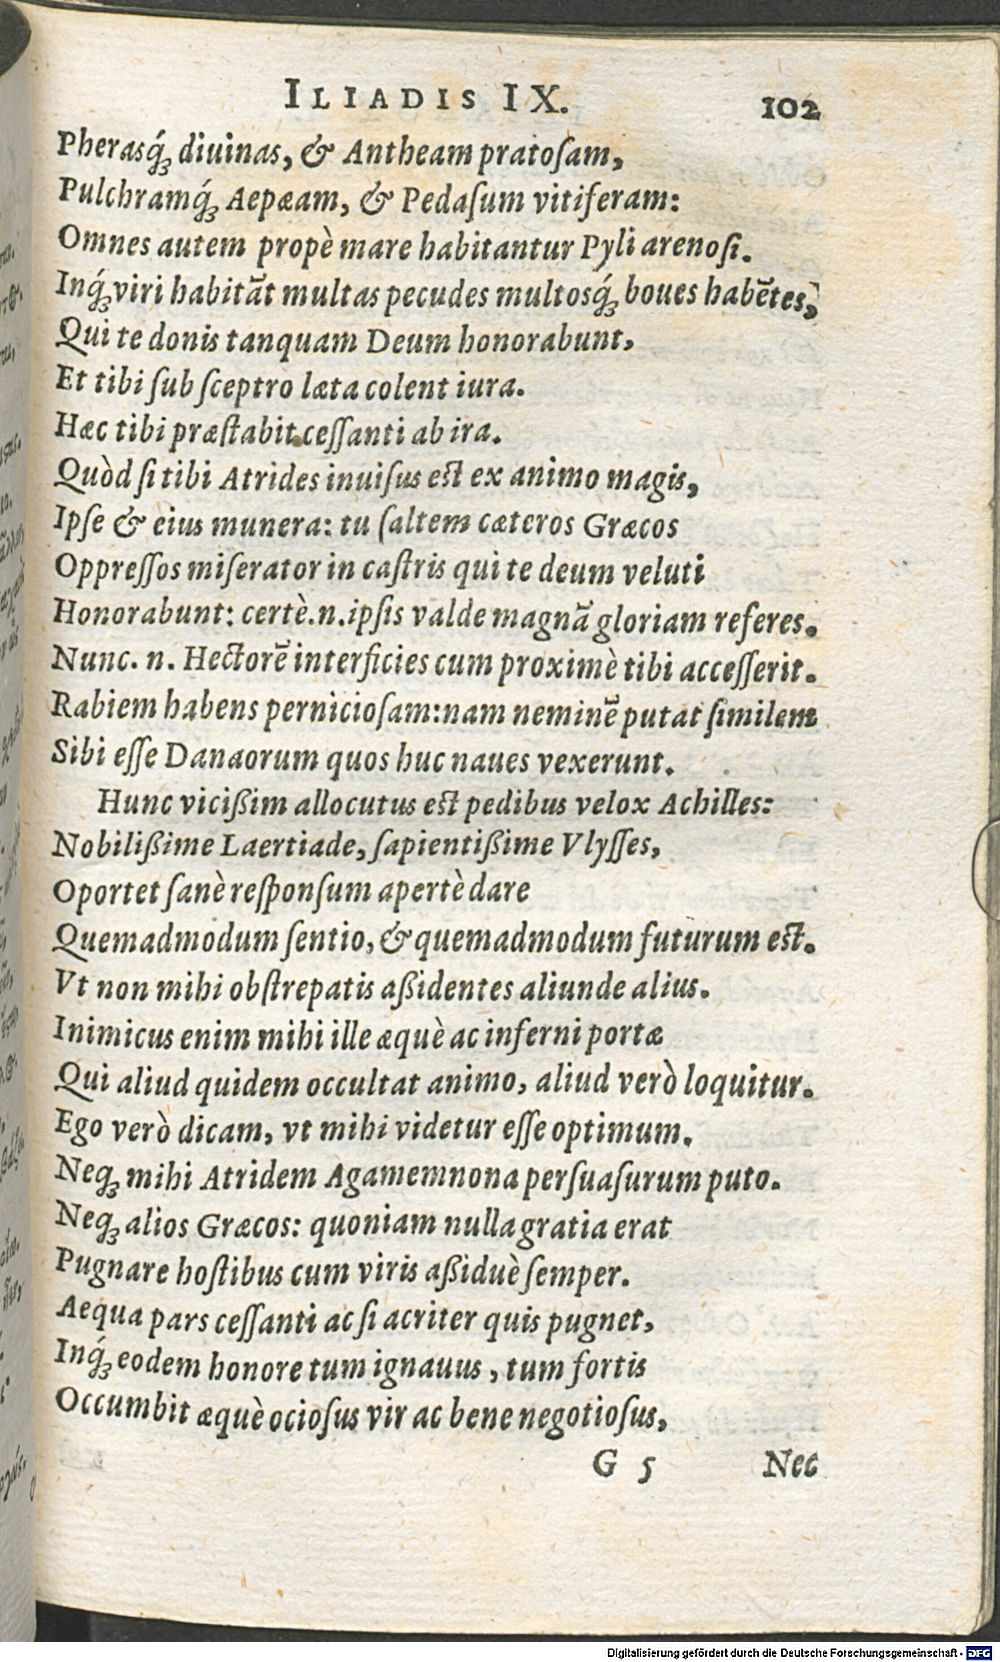 ILIADIS IX. 102
Pherasq́ꝫ diuinas, & Antheam pratoſam,
Pulchramq́ꝫ Aepæam, & Pedaſum vitiferam:
Omnes autem propè mare habitantur Pyli arenoſi.
Inq́ꝫ viri habitāt multas pecudes multosq́ꝫ boues habētes,
Qui te donis tanquam Deum honorabunt,
Et tibi ſub ſceptro læta colent iura.
Hæc tibi præſtabit ceſſanti ab ira.
Quòd ſi tibi Atrides inuiſus eſt ex animo magis,
Ipſe & eius munera: tu ſaltem cæteros Græcos
Oppreſſos miſerator in caſtris qui te deum veluti
Honorabunt: certè.n.ipſis valde magnā gloriam referes.
Nunc. n. Hectorē interficies cum proximè tibi acceſſerit.
Rabiem habens pernicioſam: nam neminē putat ſimilem
Sibi eſſe Danaorum quos huc naues vexerunt.
Hunc vicißim allocutus eſt pedibus velox Achilles:
Nobilißime Laertiade, ſapientißime Vlyſſes,
Oportet ſanè reſponſum apertè dare
Quemadmodum ſentio, & quemadmodum futurum eſt.
Vt non mihi obſtrepatis aßidentes aliunde alius.
Inimicus enim mihi ille æquè ac inferni portæ
Qui aliud quidem occultat animo, aliud verò loquitur.
Ego verò dicam, vt mihi videtur eſſe optimum.
Neqꝫ mihi Atridem Agamemnona perſuaſurum puto.
Neqꝫ alios Græcos: quoniam nulla gratia erat
Pugnare hoſtibus cum viris aßiduè ſemper.
Aequa pars ceſſanti ac ſi acriter quis pugnet,
Inq́ꝫ eodem honore tum ignauus, tum fortis
Occumbit æquè ocioſus vir ac bene negotioſus,
G 5 Nec
Digitalisierung gefördert durch die Deutsche Forschungsgemeinschaft - DFG